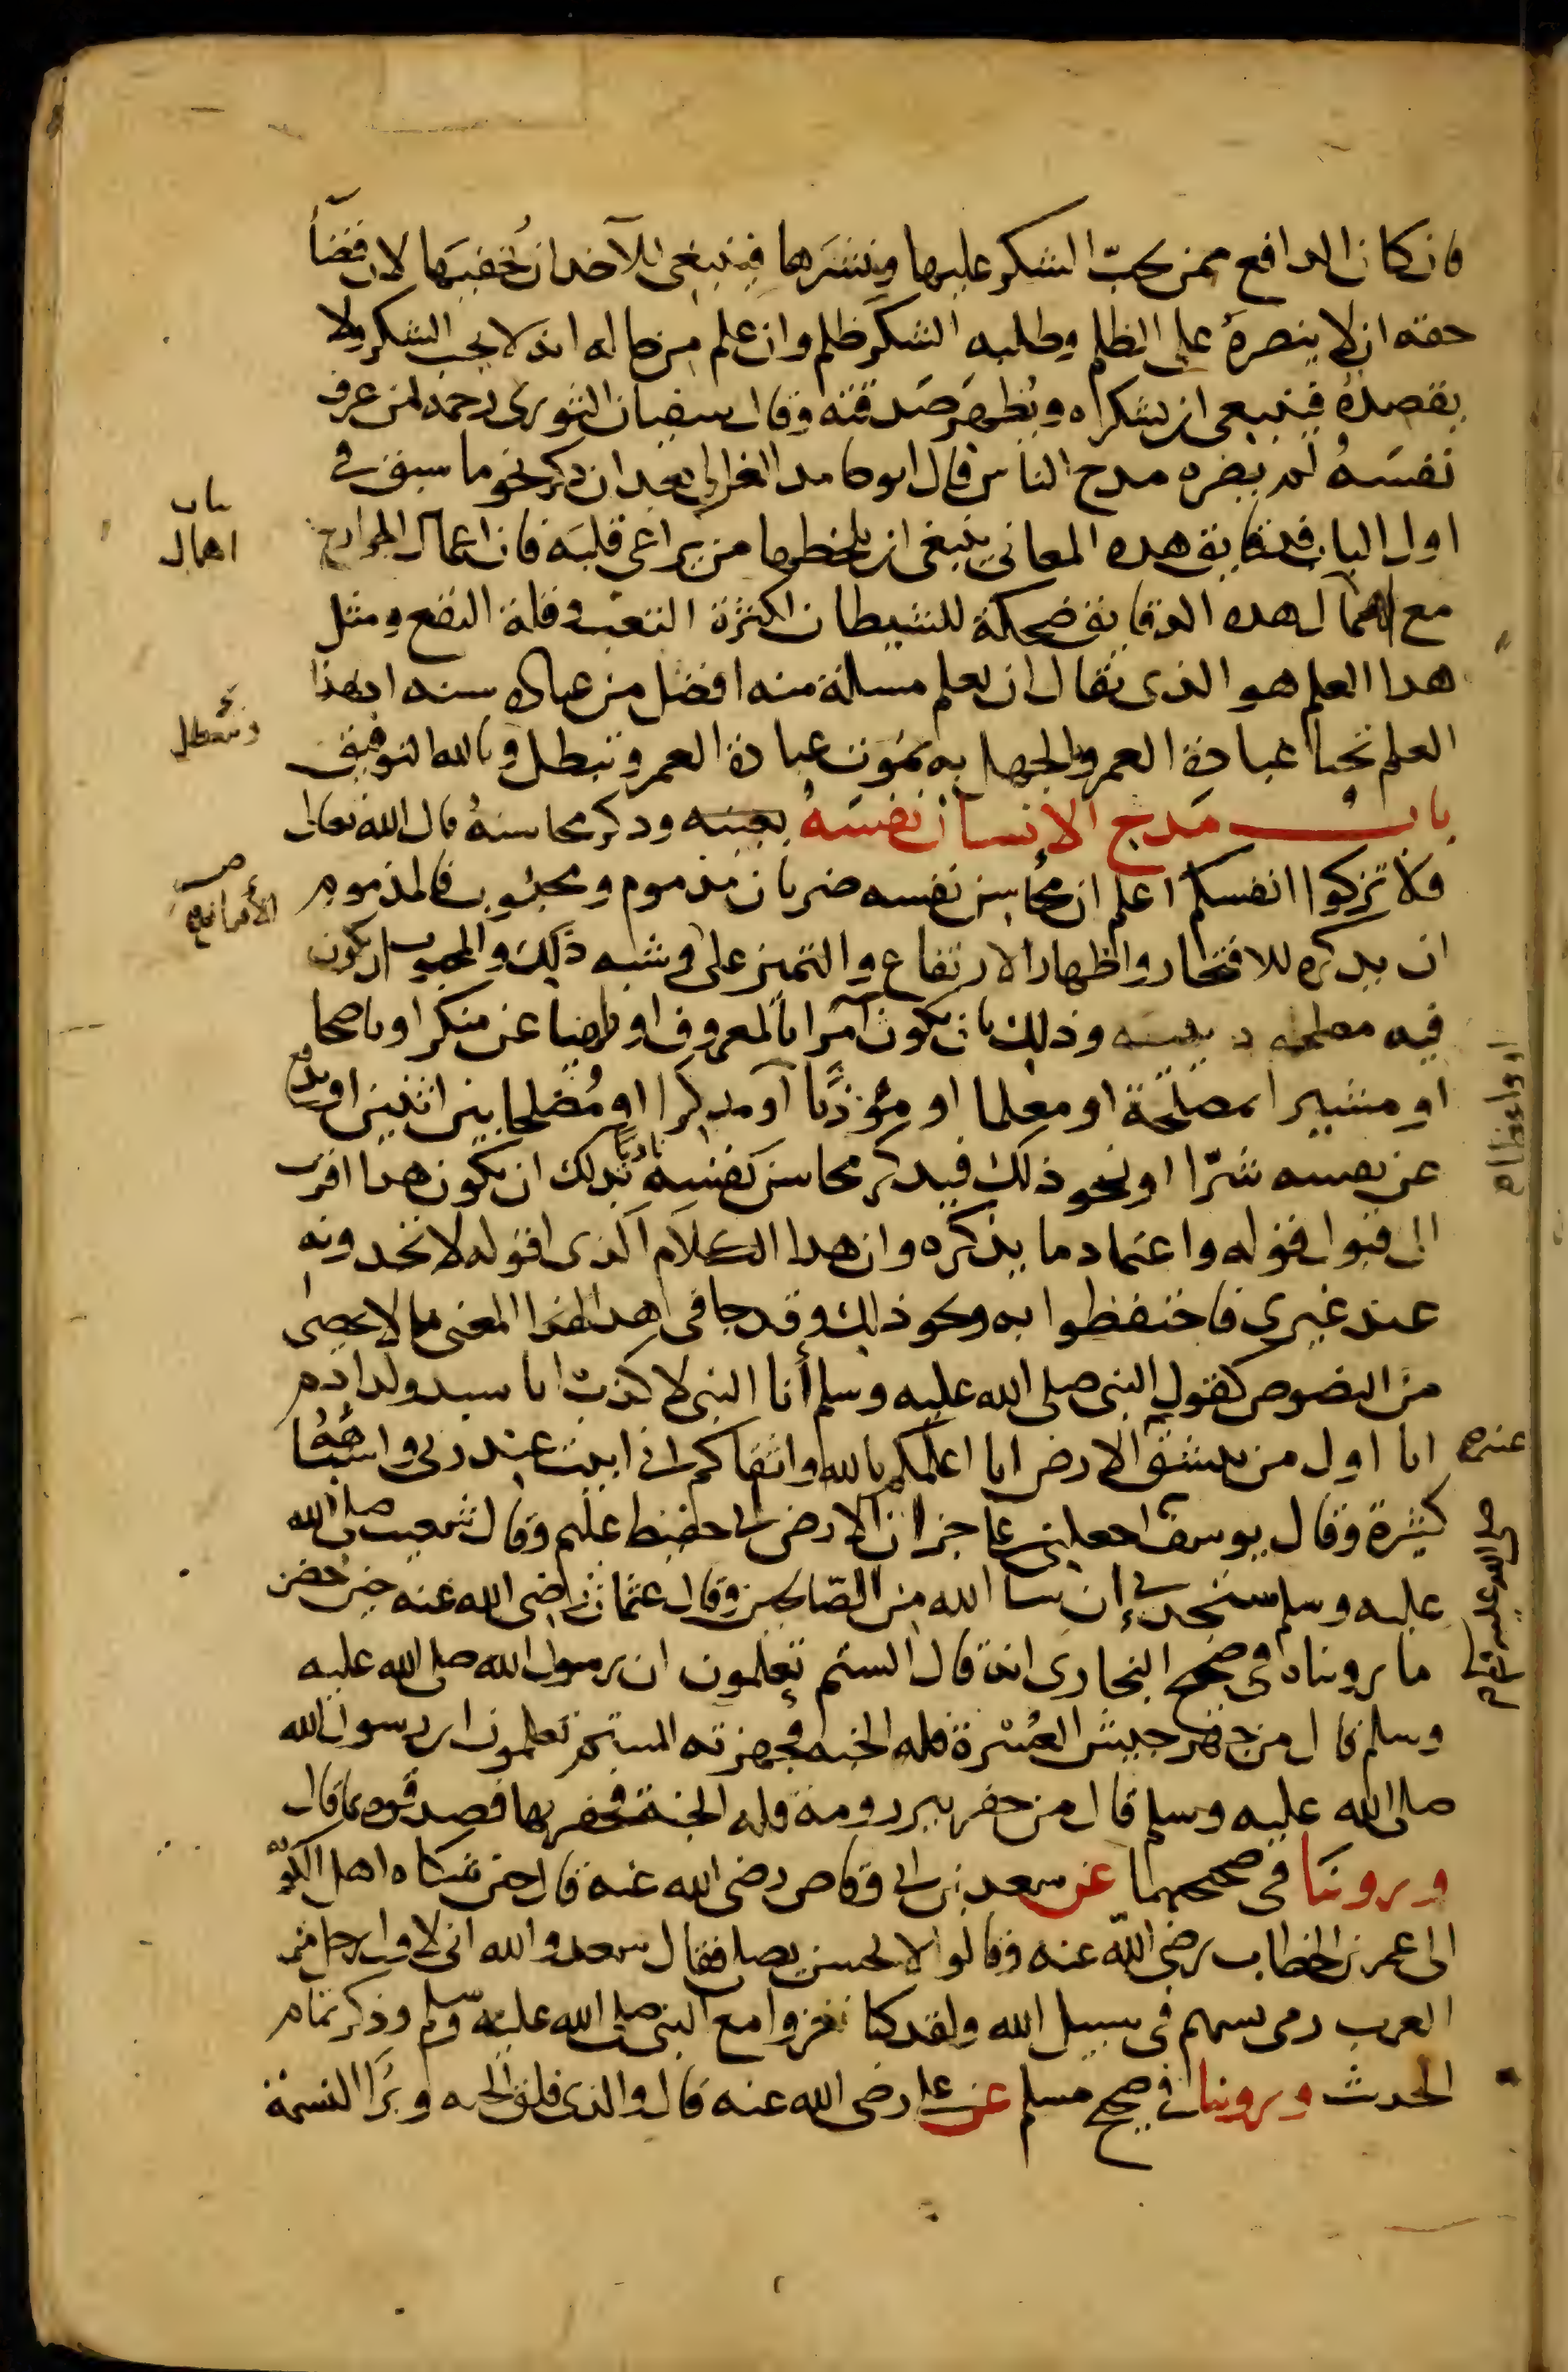 فان كان الدافع ممن يحبّ الشكر عليها ونشرها فينبغي للآخذ ان يُخفيها لان قضأ
حقه ان لا ينصره على الظلم وطلبه الشكر ظلم وان علم من حاله انه لا يحب الشكر ولا
يقصده فينبغي ان يشكراه ويُظهر صَدقته وقال سفيان الثوري رحمه لمن عرف
نفسَهُ لم يضره مدح الناس قال ابو حامد الغزالي بعد ان ذكر نحو ما سبق في
اول الباب فدقايق هذه المعاني ينبغي ان يلحظها من يراعي قلبَه فان اعمال الجوارح
مع اهمال هذه الدقايق ضحكة للشيطان لكثرة التعب وقلة النفع ومثل
هذا العلم هو الذي يقال ان تعلم مسالة منه افضل من عبادة سنه اذ بهذا
العلم تحيا عبادة العمر والجهل به تموت عبادة العمر وتبطل وبالله التوفيق
باب مَدح الإنسان نفسَهُ بعينه وذكر محاسنهُ قال الله تعالى
فلا تزكوا انفسكم اعلم ان محاسن نفسه ضربان مذموم ومحبوب فالمذموم
ان يذكره للافتخار واظهار الارتفاع والتميز على في شبه ذلك والمحبوب ان يكون
فيه مصلحه دينيه وذلك بان يكون آمرا بالمعروف او ناهيا عن منكر او ناصحا
او مشيرا بمصلحة او معلما او مؤدبا أو مذكرا او مُصلحا بين اثنين او يدفع
عن نفسه شرّا او نحو ذلك فيذكر محاسن نفسه ناويًا بذلك ان يكون هذا اقرب
الى قبول قوله واعتماد ما يذكره وان هذا الكلام الذي اقوله لا تجدونه
عند غيري فاحتفظوا به ونحو ذلك وقد جا في هذا لهذا المعنى ما لا يحصى
من النصوص كقول النبي صلى الله عليه وسلم أنا النبي لا كذب انا سيد ولد ادم
انا اول من تنشق الارض انا اعلمكم بالله واتقاكم اني ابيت عند ربي واشباهُهُ
كثيرة وقال يوسف اجعلني على خزائن الارض اني حفيظ عليم وقال شعيب صلى الله
عليه وسلم ستجدني إن شا الله من الصّالحين وقال عثمان رضي الله عنه حين حُصر
ما رويناه في صحيح البخاري انه قال الستم تعلمون ان رسول الله صلى الله عليه
وسلم قال من جهّز جيش العُسْرة فله الجنه فجهزته الستم تعلمون ان رسول الله
صلى الله عليه وسلم قال من حفر بير رومة فله الجنة فحفرتها فصدقوه بما قال
وروينَا في صحيحهما عن سعد بن ابي وقاص رضي الله عنه قال حين شكاه اهل الكوفه
الى عمر بن الخطاب رضي الله عنه وقالوا لا يحسن يصلي فقال سعد والله اني لاول رجل من
العرب رمى بسهم في سبيل الله ولقد كنا نغزوا مع النبي صلى الله عليه وسلم وذكر تمام
الحديث وروينا في صحيح مسلم عن علي رضي الله عنه قال والذي فلق الحبه وبَرَا النسمة
باب
اهمال
وتعطل
او واعظا
عنده
صلى الله عليه وسلم